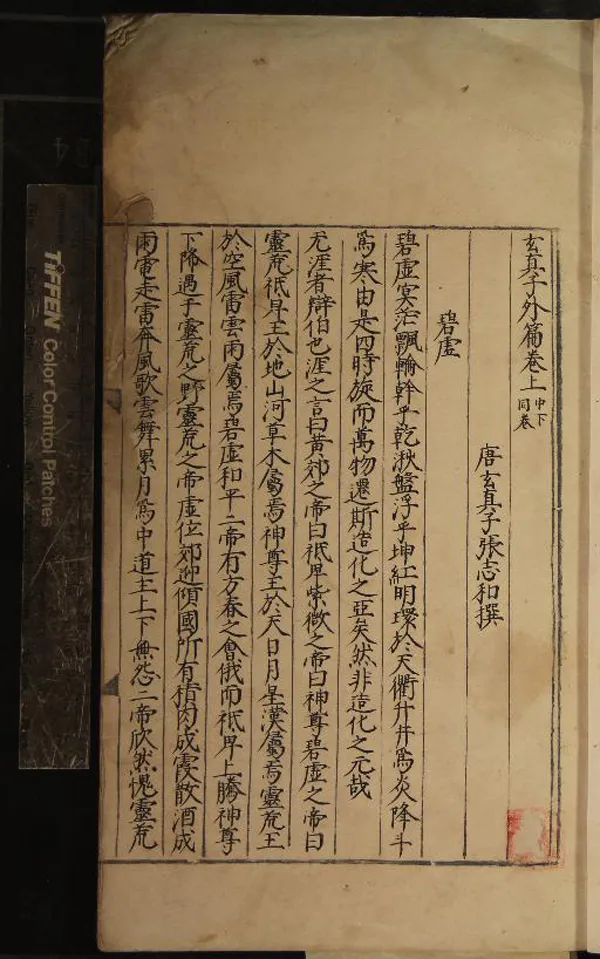 玄真子外篇卷上 中下同卷
唐玄真子張志和撰
碧虛
碧虛冥茫飄輪幹乎乾湫盤浮乎坤紅明環於天衢升井爲炎降斗
爲寒由是四時旋而萬物遷斯造化之亞矣然非造化之元哉
无涯者辯伯也涯之言曰黃郊之帝曰祇卑紫微之帝曰神尊碧虛之帝曰
靈荒祇卑王於地山河草木屬焉神尊王於天日月星漢屬焉靈荒王
於空風雷雲雨屬焉碧虛和平二帝有方春之會俄而祇卑上騰神尊
下降遇乎靈荒之野靈荒之帝虛位郊迎傾國所有積肉成霞散酒成
雨電走雷奔風歌雲舞累月爲中道主上下無怨二帝欣然愧靈荒
TIFFEN Color Control Patches